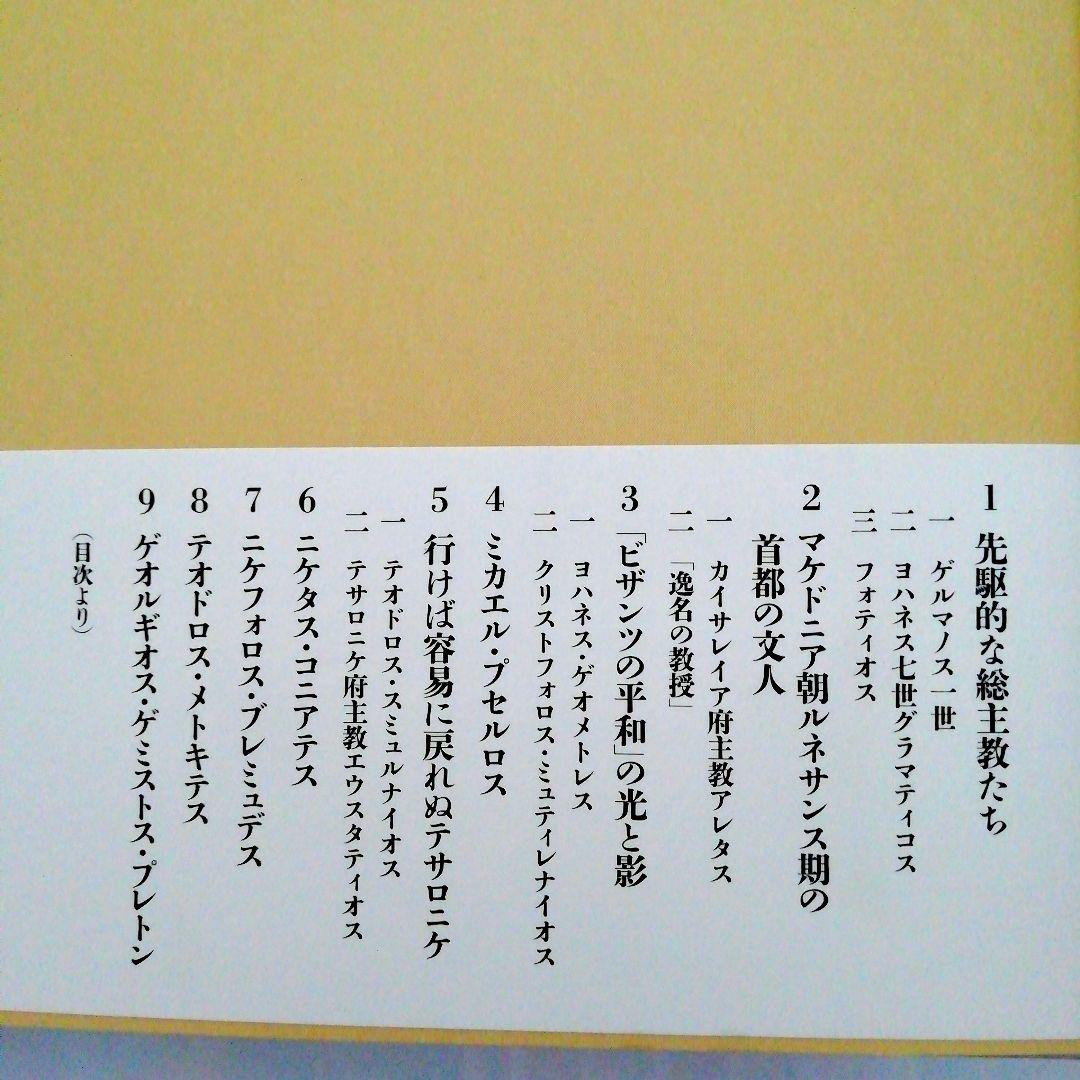 1 先駆的な総主教たち
一 ゲルマノス一世
二 ヨハネス七世グラマティコス
三 フォティオス
2 マケドニア朝ルネサンス期の
首都の文人
一 カイサレイア府主教アレタス
二 「逸名の教授」
3 「ビザンツの平和」の光と影
一 ヨハネス・ゲオメトレス
二 クリストフォロス・ミュティレナイオス
4 ミカエル・プセルロス
5 行けば容易に戻れぬテサロニケ
一 テオドロス・スミュルナイオス
二 テサロニケ府主教エウスタティオス
6 ニケタス・コニアテス
7 ニケフォロス・ブレミュデス
8 テオドロス・メトキテス
9 ゲオルギオス・ゲミストス・プレトン
（目次より）